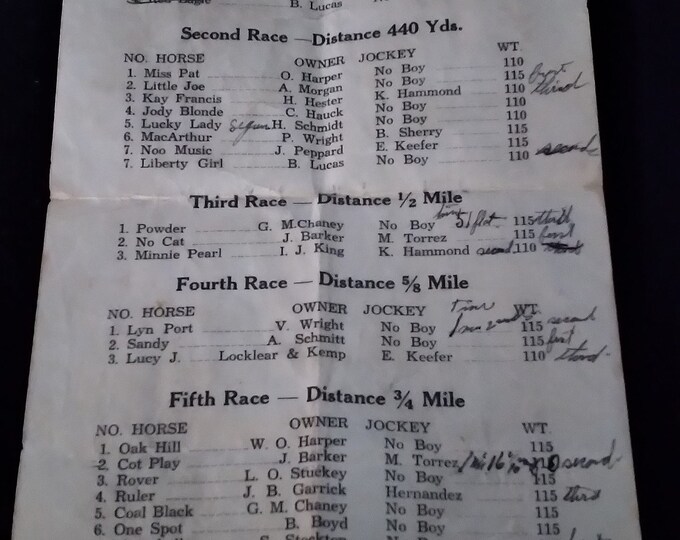 B. Lucas
Second Race — Distance 440 Yds.
NO. HORSE OWNER JOCKEY WT.
1. Miss Pat O. Harper No Boy 110
2. Little Joe A. Morgan No Boy 115 first
3. Kay Francis H. Hester K. Hammond 110 third
4. Jody Blonde C. Hauck No Boy 110
5. Lucky Lady H. Schmidt No Boy 110
6. MacArthur P. Wright B. Sherry 115
7. Noo Music J. Peppard E. Keefer 115
7. Liberty Girl B. Lucas No Boy 110 second
Third Race — Distance 1/2 Mile
1. Powder G. M. Chaney No Boy time 51 flat 115 third
2. No Cat J. Barker M. Torrez 115 first
3. Minnie Pearl I. J. King K. Hammond second 110
Fourth Race — Distance 5/8 Mile
NO. HORSE OWNER JOCKEY time WT.
1. Lyn Port V. Wright No Boy 115 second
2. Sandy A. Schmitt No Boy 115 first
3. Lucy J. Locklear & Kemp E. Keefer 110 third
Fifth Race — Distance 3/4 Mile
NO. HORSE OWNER JOCKEY WT.
1. Oak Hill W. O. Harper No Boy 115
2. Cot Play J. Barker M. Torrez second
3. Rover L. O. Stuckey No Boy 115
4. Ruler J. B. Garrick Hernandez 115 third
5. Coal Black G. M. Chaney No Boy 115
6. One Spot B. Boyd No Boy 110